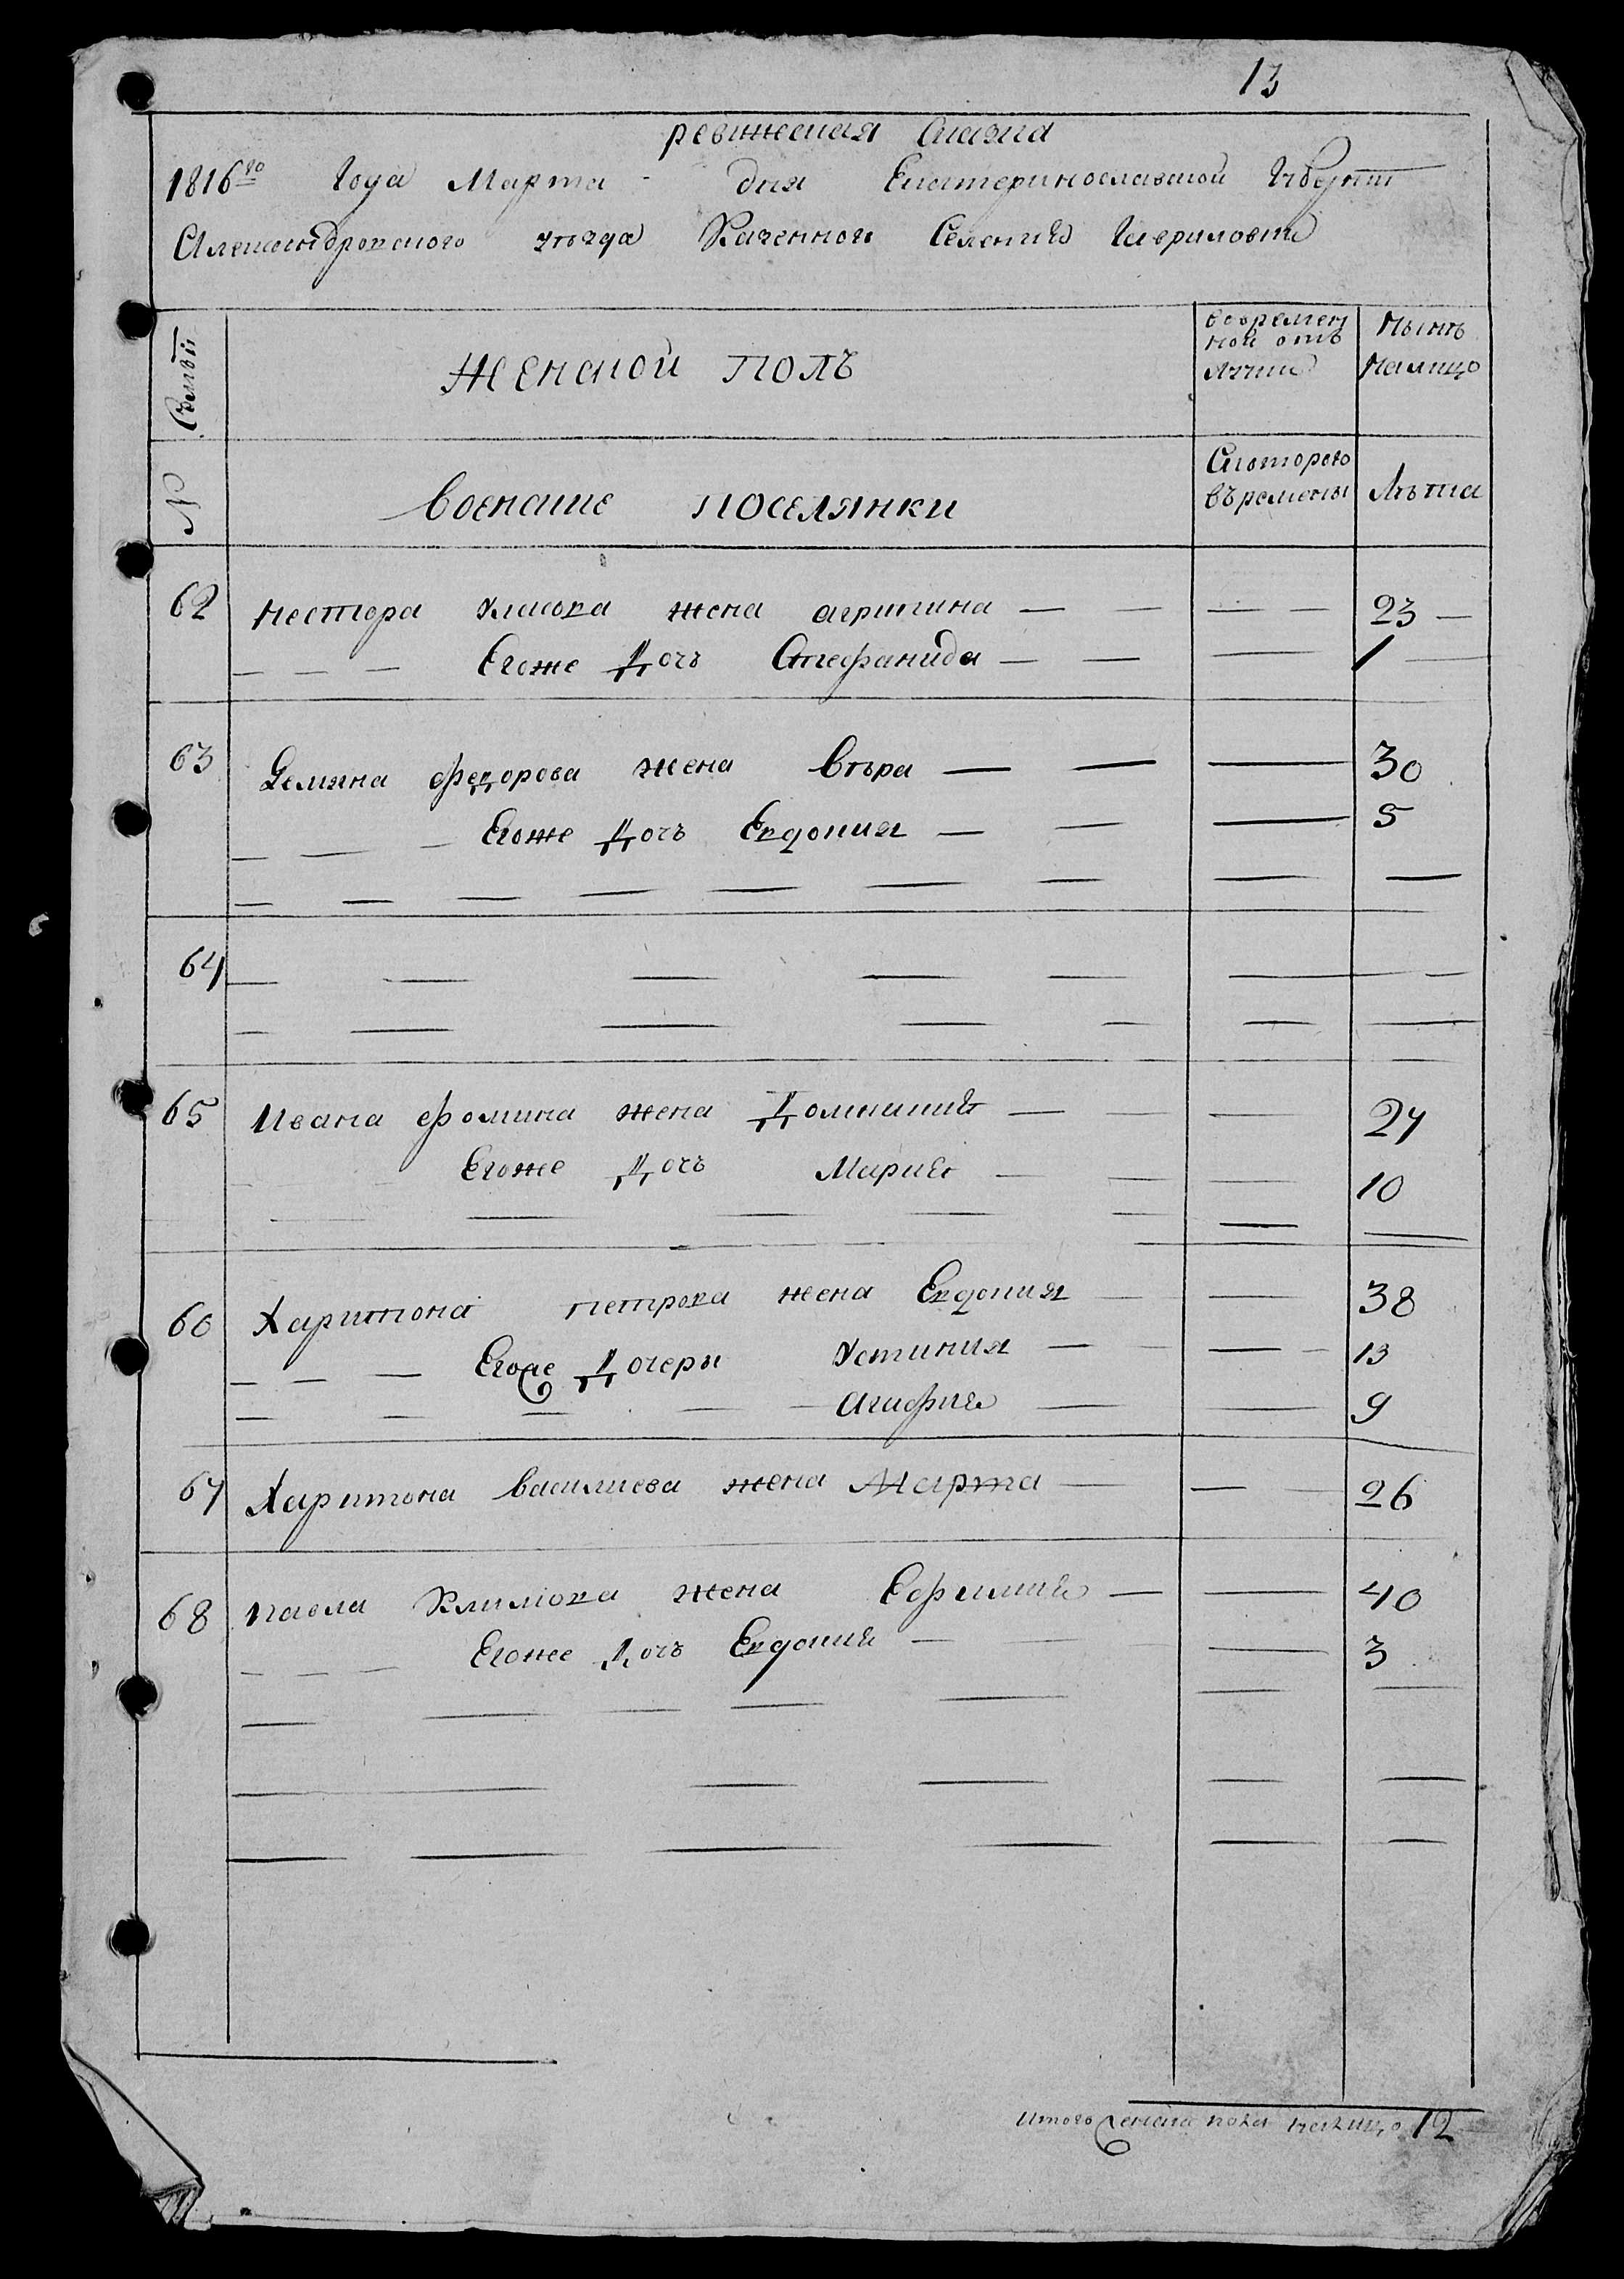 13
ревижская Сказка
1816го Года Марта дня Екатеринославской Губерни
Александровского уѣзда Казенного Селения Гавриловки
Семьи
Женской полъ
вовремен
ной отъ
лучки
Нынѣ
Налицо
N
военские поселянки
Скоторого
въремены
Лѣта
62 Нестора жена агрипина — — — — 23 —
— — — Егоже Дочь Стефанида — — — 1 —
63 Демяна федорова жена Вѣра — — — 30
— — — Егоже Дочь Евдокия — — — 5
— — — — — — — — —
64 — — — — — — — —
— — — — — — —
65 Ивана фомина жена Домникия — — — 27
Егоже Дочь Мария — — — 10
— — — — — — —
66 Харитона петрова жена Евдокия — — 38
— — — Егоже Дочери Устиния — — — — 13
— — — — — Агафия — — 9
67 Харитона василиева жена Марта — — — 26
68 павла Климова жена Ефимия — — 40
— — — Егоже Дочь Евдокия — — — 3
— — — — — — —
— — — — —
— — — — — —
Итого женска пола налицо 12